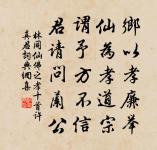 鄉以孝廉舉
仙為孝道宗
謂予方不信
君請問蘭公
林同仙佛之孝十首許
真君詞典網